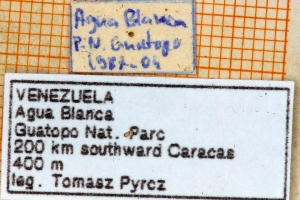 Agua Blanca
P.N. Guatopo
1982-04
VENEZUELA
Agua Blanca
Guatopo Nat. Parc
200 km southward Caracas
400 m
lag. Tomasz Pyrcz